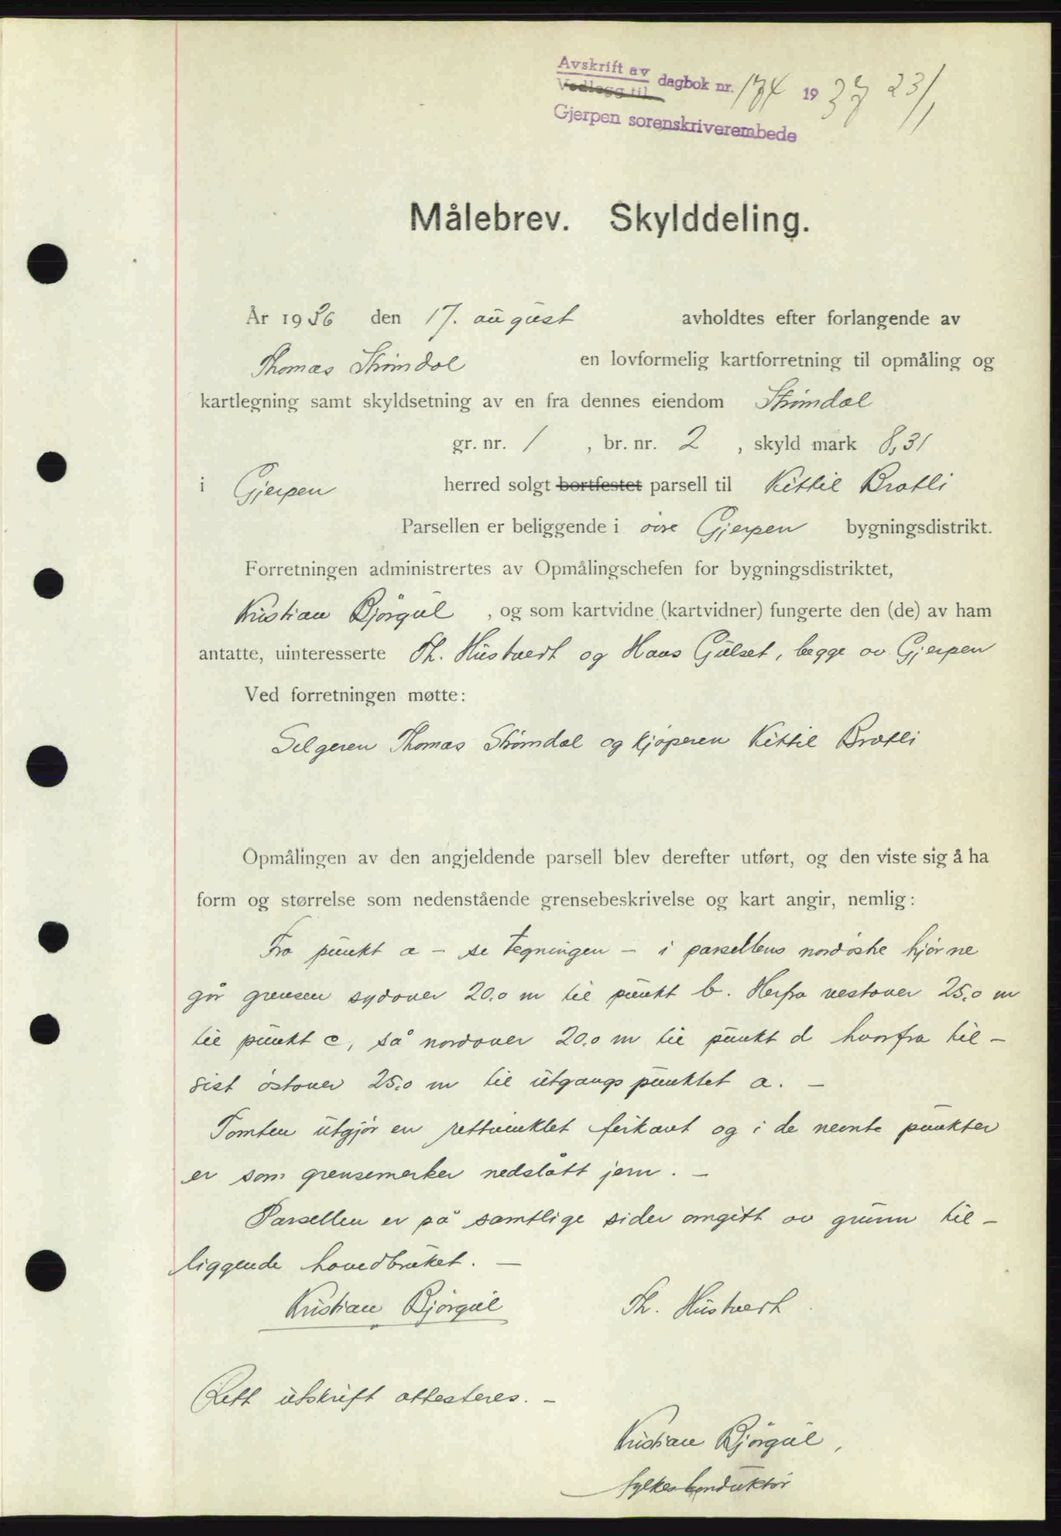 Avskrift av
Vedlegg til dagbok nr. 174 1937 23/1
Gjerpen sorenskriverembede
Målebrev. Skylddeling.
År 1936 den 17. august avholdtes efter forlangende av
Thomas Strømdal en lovformelig kartforretning til opmåling og
kartlegning samt skyldsetning av en fra dennes eiendom Strømdal
gr. nr. 1 , br. nr. 2 , skyld mark 8,31
i Gjerpen herred solgt bortfestet parsell til Kittil Bratli
Parsellen er beliggende i øvre Gjerpen bygningsdistrikt.
Forretningen administrertes av Opmålingschefen for bygningsdistriktet,
Kristian Bjørgul , og som kartvidne (kartvidner) fungerte den (de) av ham
antatte, uinteresserte Th. Hustvert og Hans Gulset, begge av Gjerpen
Ved forretningen møtte:
Selgeren Thomas Strømdal og kjøperen Kittil Bratli
Opmålingen av den angjeldende parsell blev derefter utført, og den viste sig å ha
form og størrelse som nedenstående grensebeskrivelse og kart angir, nemlig:
Fra punkt a - se tegningen - i parsellens nordøstre hjørne
går grensen sydover 20.0 m til punkt b. Herfra vestover 25.0 m
til punkt c, så nordover 20.0 m til punkt d hvorfra til-
sist østover 25.0 m til utgangspunktet a. -
Tomten utgjør en rettvinklet firkant og i de nevnte punkter
er som grensemerker nedslått jern. -
Parsellen er på samtlige sider omgitt av grunn til-
liggende hovedbruket. -
Kristian Bjørgul Th. Hustvert
Rett utskrift attesteres. -
Kristian Bjørgul,
fylkeskonduktør